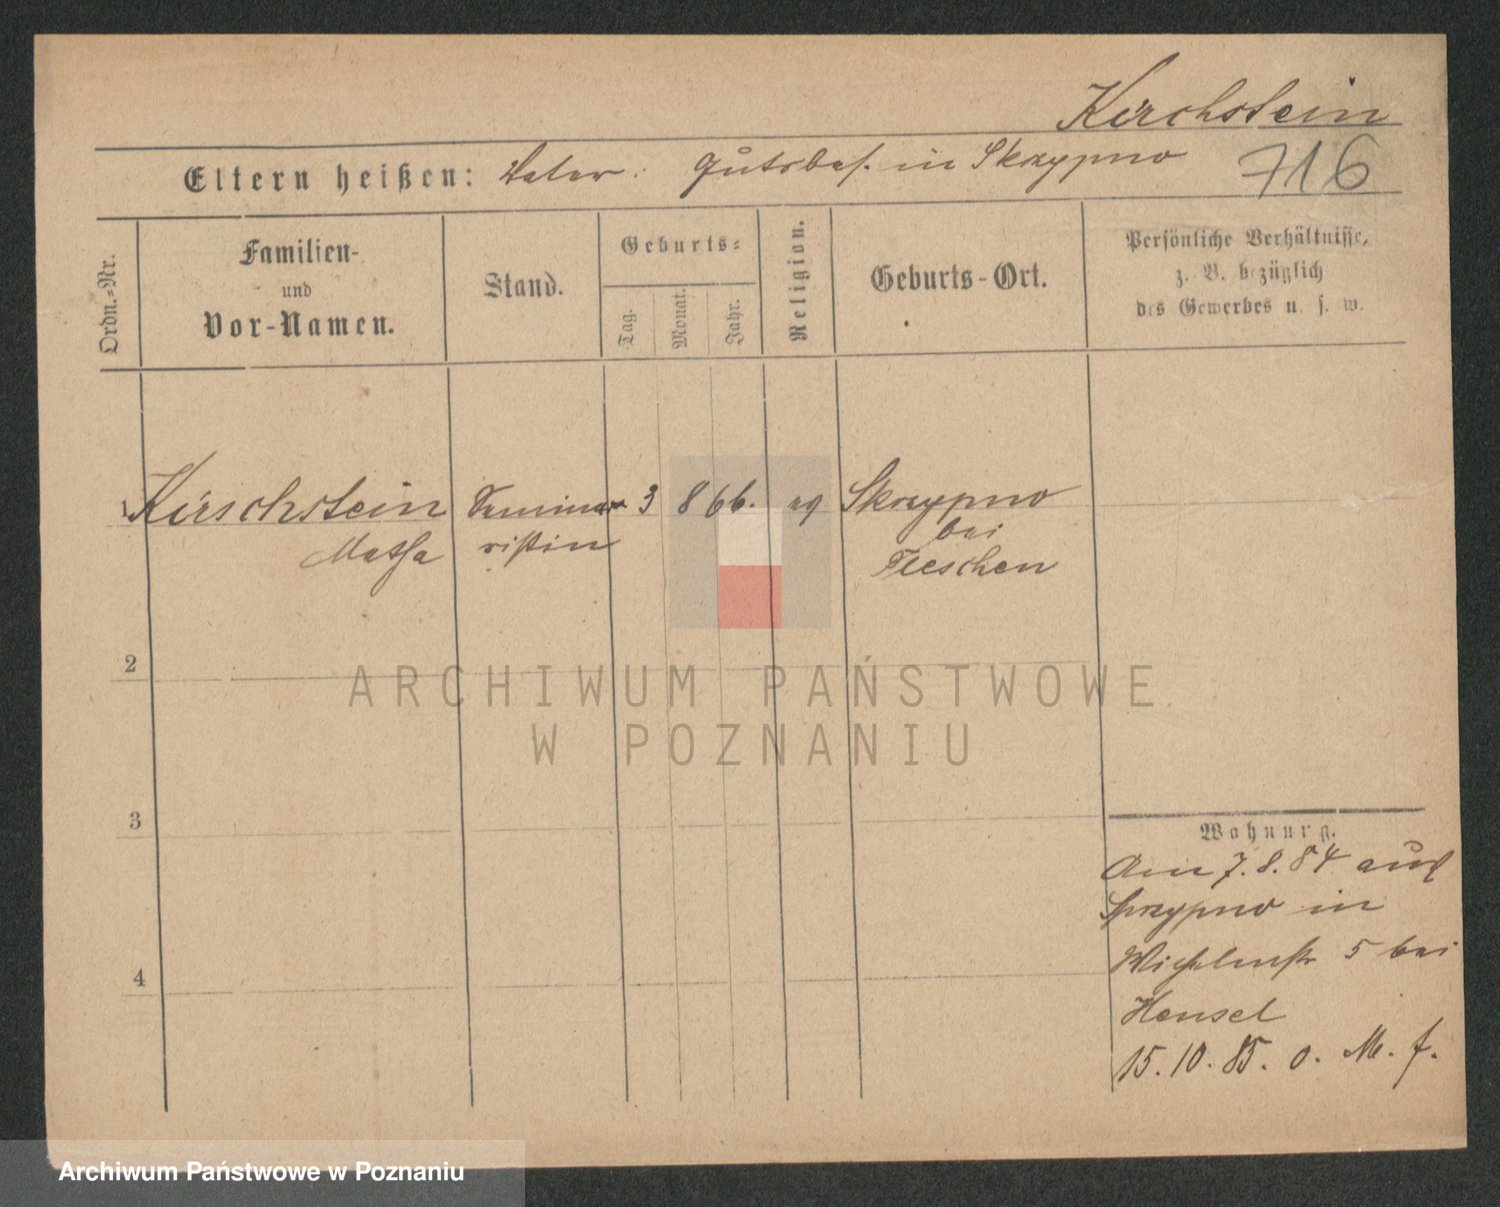 Kirchstein
Eltern heißen: Vater: Gutsbes. in Skrzypno 716
Ordn.-Nr.
Familien-
und
Vor-Namen.
Stand.
Geburts-
Tag.
Monat.
Jahr.
Religion.
Geburts-Ort.
Persönliche Verhältnisse,
z. B. bezüglich
des Gewerbes u. s. w.
1 Kirschstein Seminar 3 8 66. ev Skrzypno
ristin bei
Pleschen
2
ARCHIWUM PAŃSTWOWE
W POZNANIU
3
4
Wohnung.
Am 7.8.84 aus
Skrzypno in
5 bei
Hensel
15.10.85. o. M. f.
Archiwum Państwowe w Poznaniu